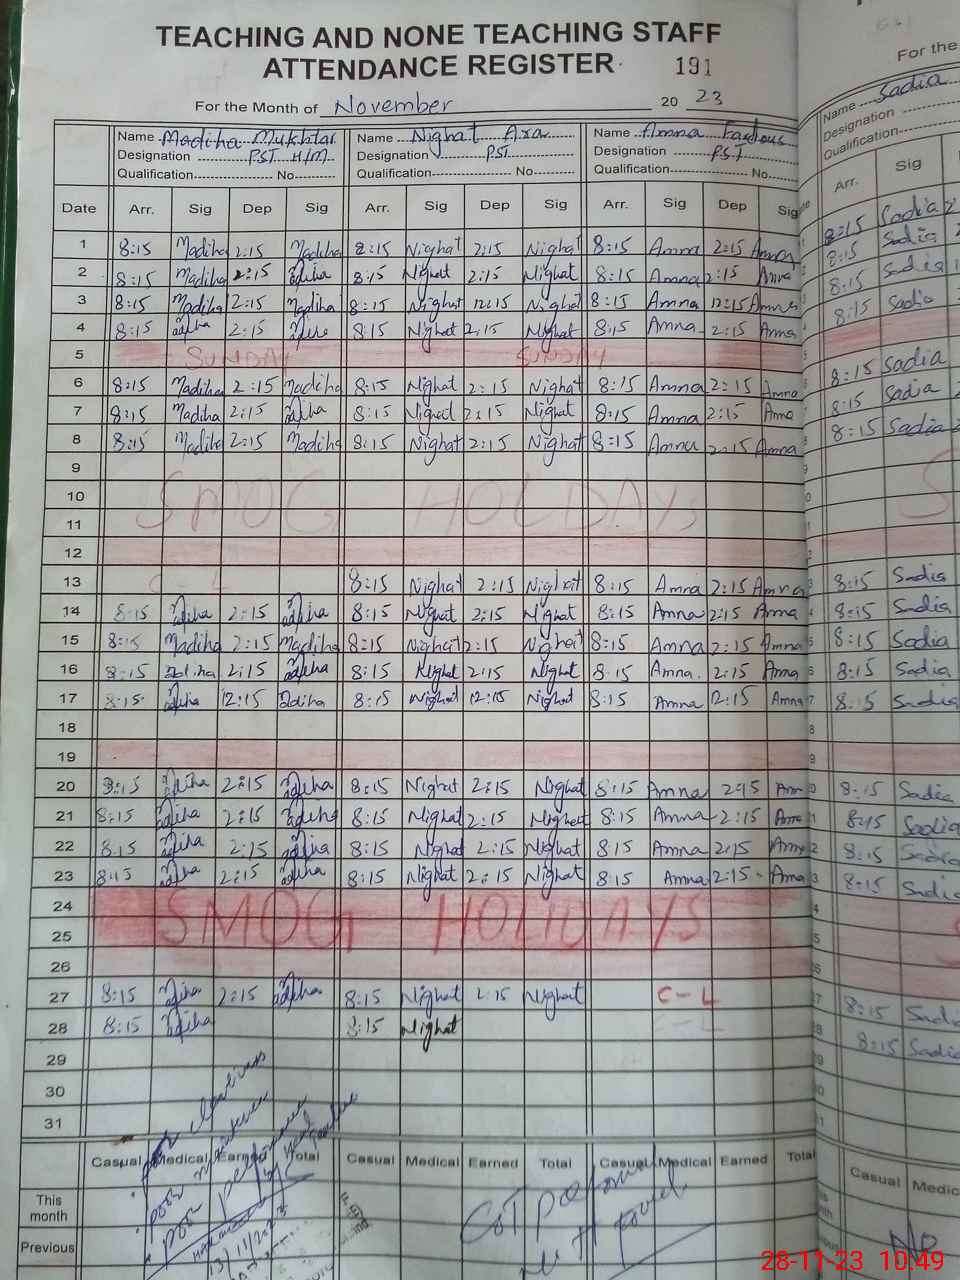 TEACHING AND NONE TEACHING STAFF
ATTENDANCE REGISTER. 191
For the Month of November 20 23
Name Madiha Mukhtar Name Nighat Ara Name Amna
Designation PST H/M Designation PST Designation PST
Qualification No Qualification No Qualification No
Date Arr. Sig Dep Sig Arr. Sig Dep Sig Arr. Sig Dep Sig
1 8:15 Madiha 2:15 Madiha 8:15 Nighat 2:15 Nighat 8:15 Amna 2:15 Amna
2 8:15 Madiha 2:15 Madiha 8:15 Nighat 2:15 Nighat 8:15 Amna 2:15 Amna
3 8:15 Madiha 2:15 Madiha 8:15 Nighat 12:15 Nighat 8:15 Amna 12:15 Amna
4 8:15 Madiha 2:15 Madiha 8:15 Nighat 2:15 Nighat 8:15 Amna 2:15 Amna
5 SUNDAY SUNDAY
6 8:15 Madiha 2:15 Madiha 8:15 Nighat 2:15 Nighat 8:15 Amna 2:15 Amna
7 8:15 Madiha 2:15 Madiha 8:15 Nighat 2:15 Nighat 8:15 Amna 2:15 Amna
8 8:15 Madiha 2:15 Madiha 8:15 Nighat 2:15 Nighat 8:15 Amna 2:15 Amna
9
10 SMOG HOLDAYS
11
12
13 C-L 8:15 Nighat 2:15 Nighat 8:15 Amna 2:15 Amna
14 8:15 Madiha 2:15 Madiha 8:15 Nighat 2:15 Nighat 8:15 Amna 2:15 Amna
15 8:15 Madiha 2:15 Madiha 8:15 Nighat 2:15 Nighat 8:15 Amna 2:15 Amna
16 8:15 Madiha 2:15 Madiha 8:15 Nighat 2:15 Nighat 8:15 Amna 2:15 Amna
17 8:15 Madiha 12:15 Madiha 8:15 Nighat 12:15 Nighat 8:15 Amna 12:15 Amna
18
19
20 8:15 Madiha 2:15 Madiha 8:15 Nighat 2:15 Nighat 8:15 Amna 2:15 Amn
21 8:15 Madiha 2:15 Madiha 8:15 Nighat 2:15 Nighat 8:15 Amna 2:15 Amna
22 8:15 Madiha 2:15 Madiha 8:15 Nighat 2:15 Nighat 8:15 Amna 2:15 Amna
23 8:15 Madiha 2:15 Madiha 8:15 Nighat 2:15 Nighat 8:15 Amna 2:15 Amna
24 SMOG HOLIDAYS
25
26
27 8:15 Madiha 2:15 Madiha 8:15 Nighat 2:15 Nighat C-L
28 8:15 Madiha 8:15 Nighat C-L
29
30
31
Casual Medical Earned Total Casual Medical Earned Total Casual Medical Earned Total
This
month
Previous
poor
poor performance
13/11/2023
For the
Name Sadia
Designation
Qualification
Arr. Sig
8:15 Sadia
8:15 Sadia
8:15 Sadia
8:15 Sadia
8:15 Sadia
8:15 Sadia
8:15 Sadia
8:15 Sadia
8:15 Sadia
8:15 Sadia
8:15 Sadia
8:15 Sadia
8:15 Sadia
8:15 Sadia
8:15 Sadia
8:15 Sadia
8:15 Sadia
8:15 Sadia
Casual Medic
28-11-23 10:49